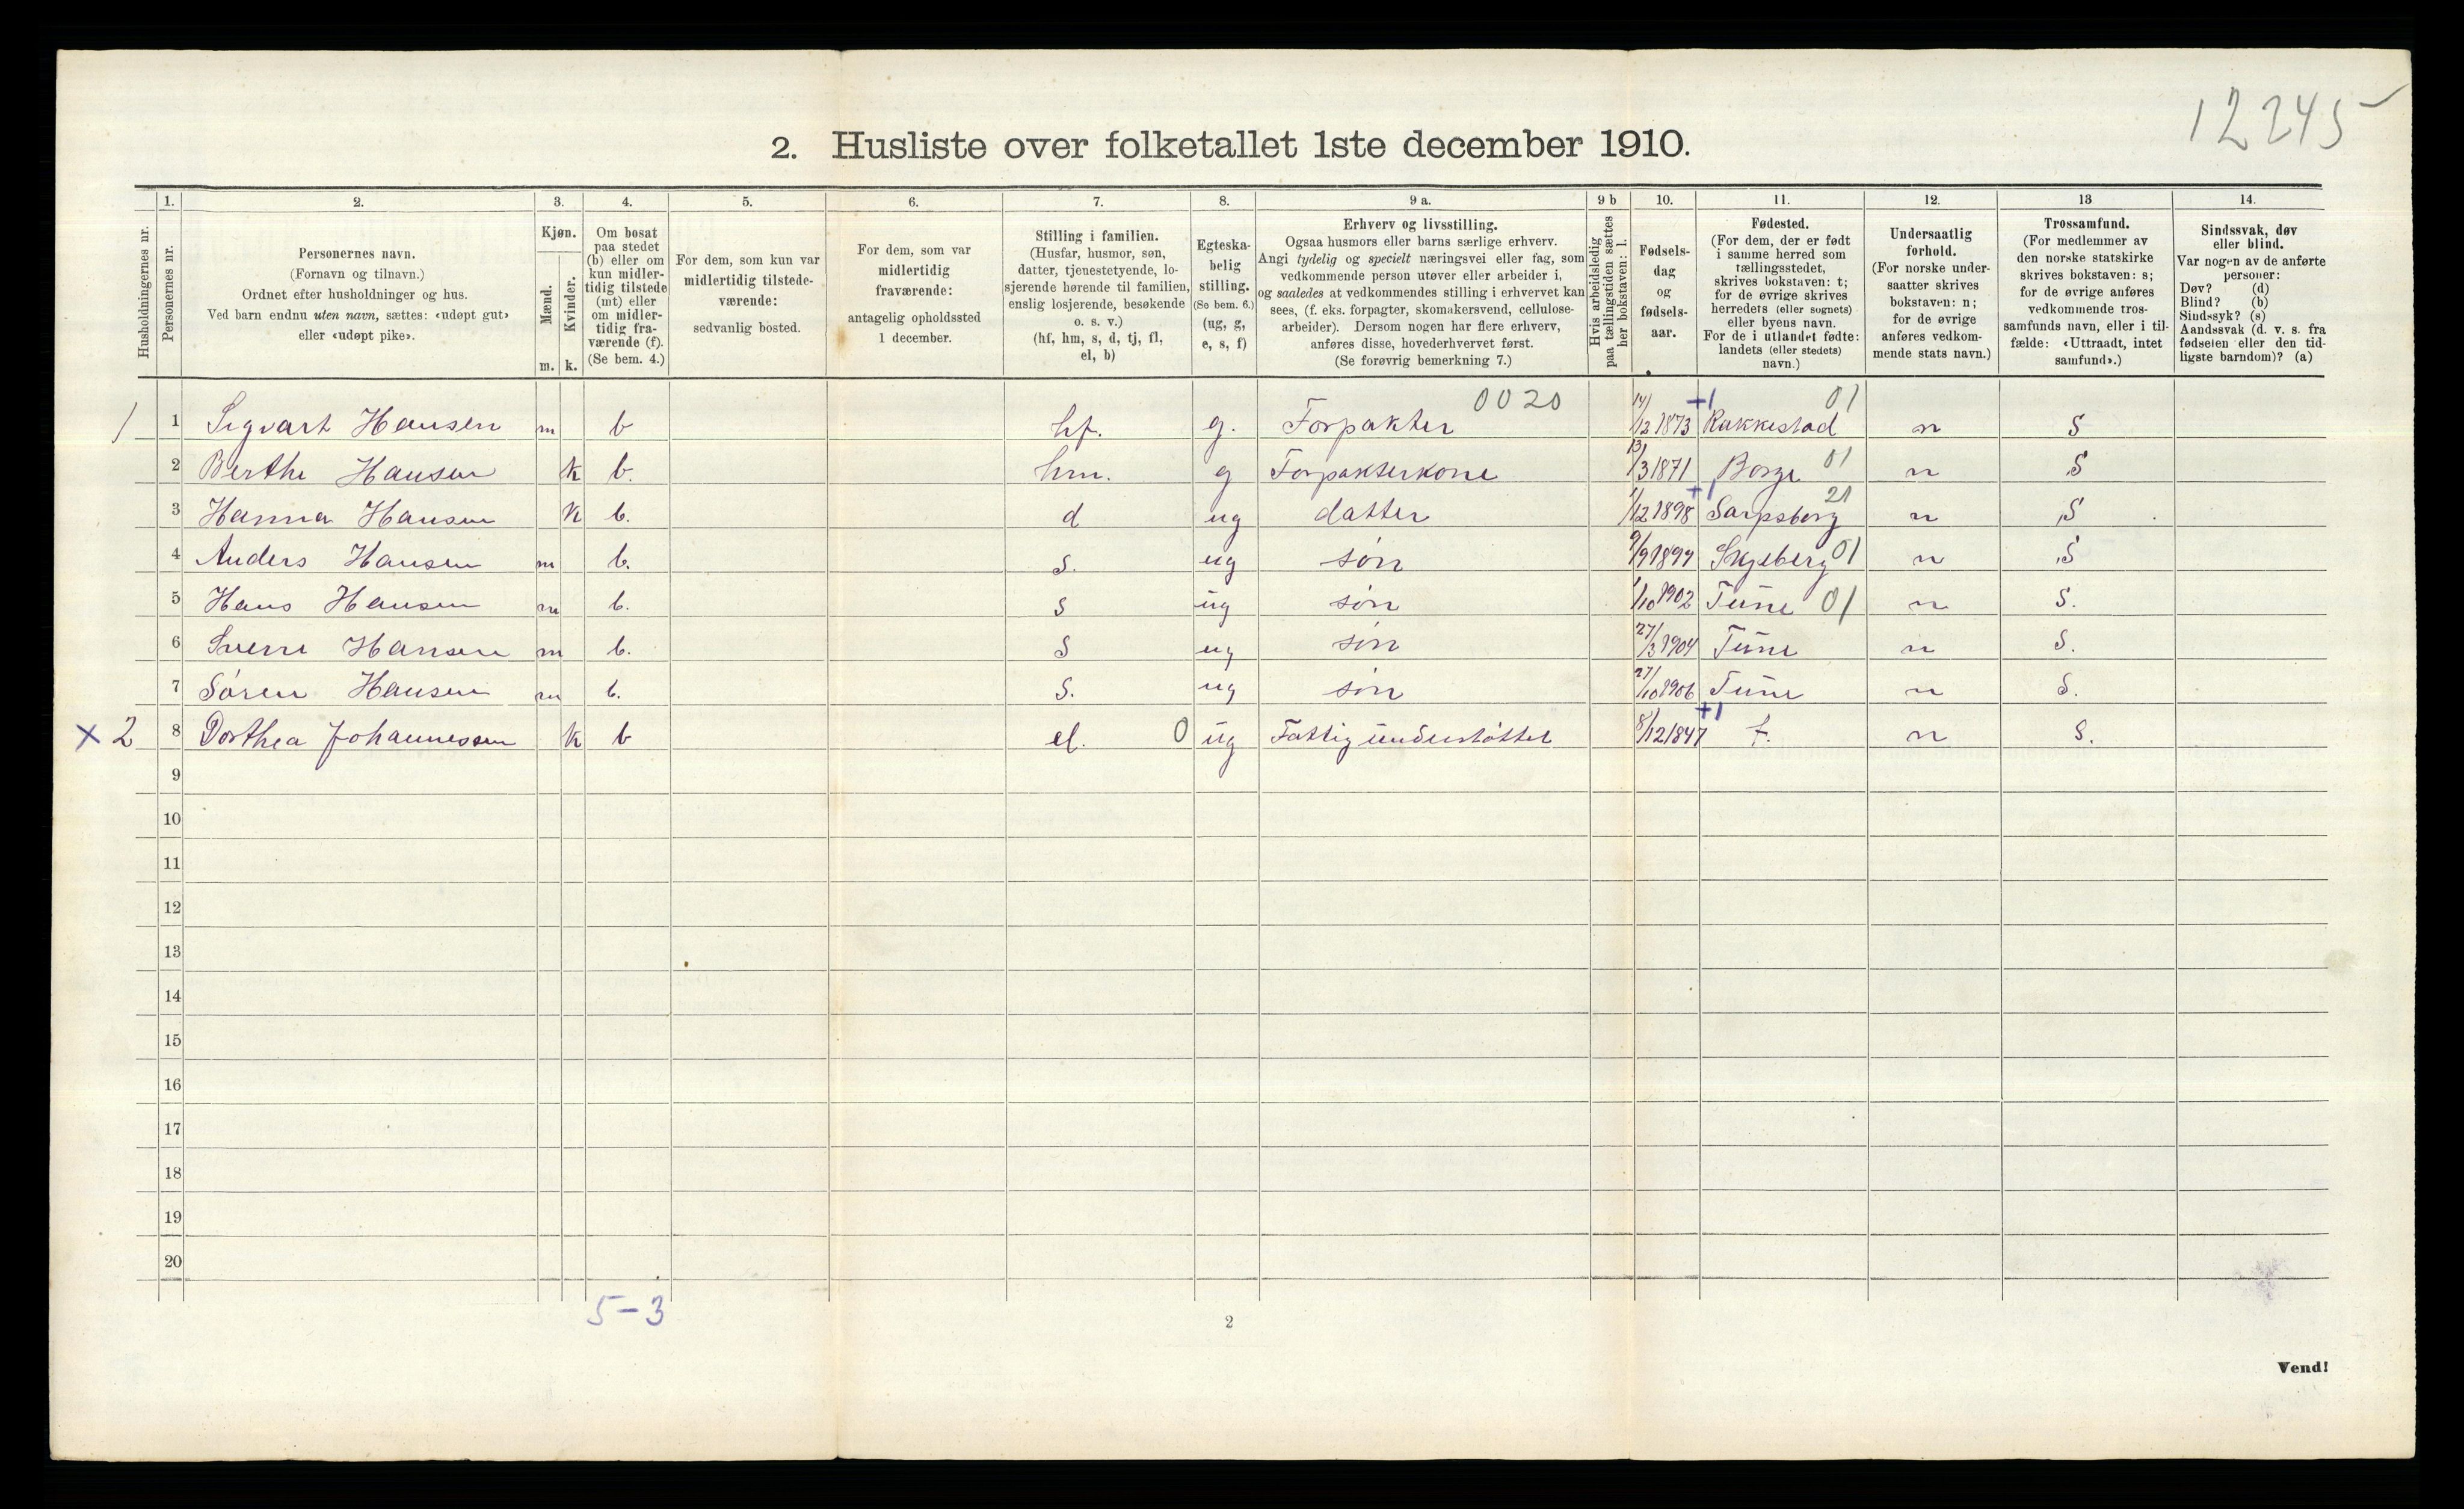 12245
2. Husliste over folketallet 1ste december 1910.
Husholdningernes nr.
1. Personernes nr.
2. Personernes navn.
(Fornavn og tilnavn.)
Ordnet efter husholdninger og hus.
Ved barn endnu uten navn, sættes: «udøpt gut»
eller «udøpt pike».
3. Kjøn.
Mænd. m.
Kvinder. k.
4. Om bosat
paa stedet
(b) eller om
kun midler-
tidig tilstede
(mt) eller
om midler-
tidig fra-
værende (f).
(Se bem. 4.)
5. For dem, som kun var
midlertidig tilstede-
værende:
sedvanlig bosted.
6. For dem, som var
midlertidig
fraværende:
antagelig opholdssted
1 december.
7. Stilling i familien.
(Husfar, husmor, søn,
datter, tjenestetyende, lo-
sjerende hørende til familien,
enslig losjerende, besøkende
o. s. v.)
(hf, hm, s, d, tj, fl,
el, b)
8. Egteska-
belig
stilling.
(Se bem. 6.)
(ug, g,
e, s, f)
9 a. Erhverv og livsstilling.
Ogsaa husmors eller barns særlige erhverv.
Angi tydelig og specielt næringsvei eller fag, som
vedkommende person utøver eller arbeider i,
og saaledes at vedkommendes stilling i erhvervet kan
sees, (f. eks. forpagter, skomakersvend, cellulose-
arbeider). Dersom nogen har flere erhverv,
anføres disse, hovederhvervet først.
(Se forøvrig bemerkning 7.)
9 b Hvis arbeidsledig
paa tællingstiden sættes
her bokstaven: l.
10. Fødsels-
dag
og
fødsels-
aar.
11. Fødested.
(For dem, der er født
i samme herred som
tællingsstedet,
skrives bokstaven: t;
for de øvrige skrives
herredets (eller sognets)
eller byens navn.
For de i utlandet fødte:
landets (eller stedets)
navn.)
12. Undersaatlig
forhold.
(For norske under-
saatter skrives
bokstaven: n;
for de øvrige
anføres vedkom-
mende stats navn.)
13 Trossamfund.
(For medlemmer av
den norske statskirke
skrives bokstaven: s;
for de øvrige anføres
vedkommende tros-
samfunds navn, eller i til-
fælde: «Uttraadt, intet
samfund».)
14. Sindssvak, døv
eller blind.
Var nogen av de anførte
personer:
Døv? (d)
Blind? (b)
Sindssyk? (s)
Aandssvak (d. v. s. fra
fødselen eller den tid-
ligste barndom)? (a)
0020 +1 01
1 1 Sigvart Hansen m b hf. g. Forpakter 14/12 1873 Rakkestad n S
2 Berthe Hansen k b. hm. g Forpakterkone 13/3 1871 Borge 01 n S
+1 21
3 Hanna Hansen k b. d ug datter 1/12 1898 Sarpsborg n S
4 Anders Hansen m b. s. ug søn 9/9 1899 Skjeberg 01 n S
5 Hans Hansen m b. s ug søn 1/10 1902 Tune 01 n S.
6 Sverre Hansen m b. s ug søn 27/3 1904 Tune n S.
7 Søren Hansen m b. s. ug søn 27/10 1906 Tune n S.
+1
x 2 8 Dorthea Johannessen k b el. 0 ug Fattigunderstøttet 8/12 1847 t n S.
9
10
11
12
13
14
15
16
17
18
19
20
5-3
2
Vend!